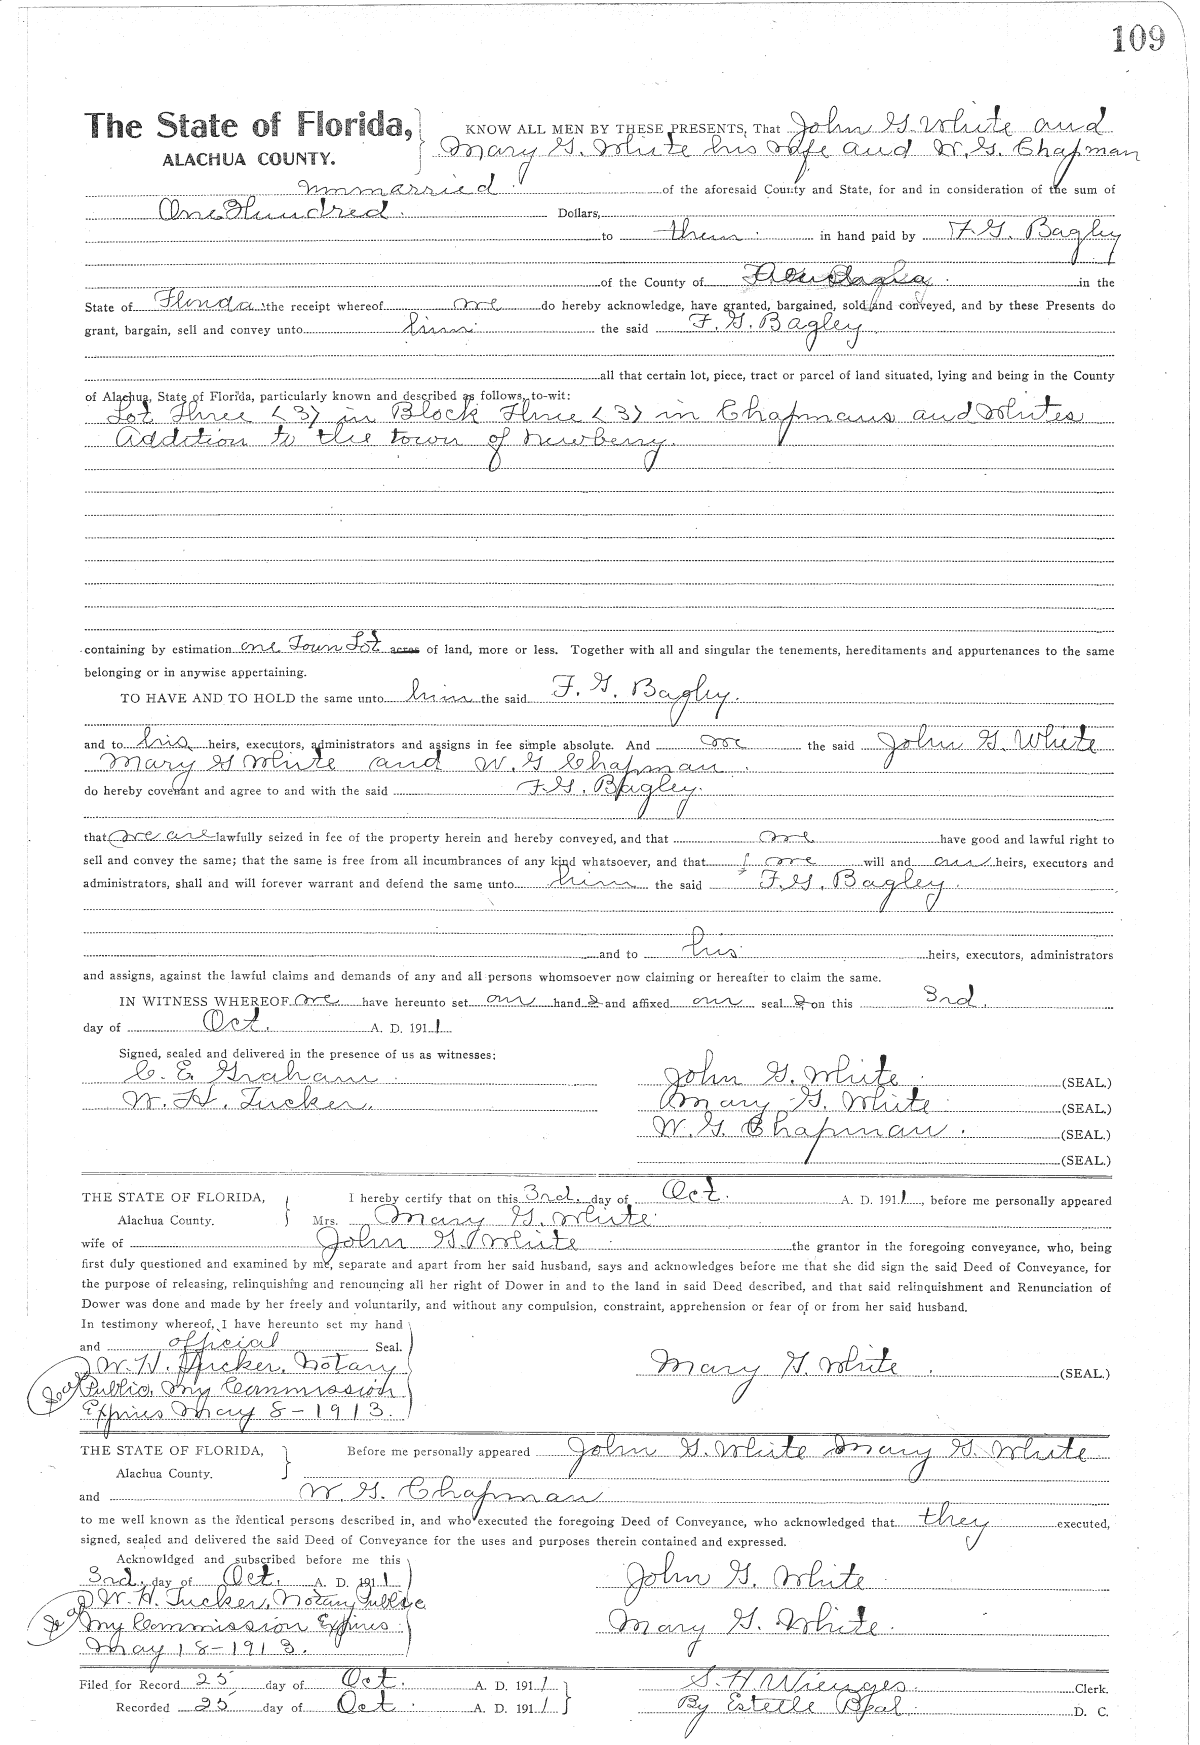 109
The State of Florida, KNOW ALL MEN BY THESE PRESENTS, That John G. White and
ALACHUA COUNTY. Mary G. White his wife and W. G. Chapman
unmarried of the aforesaid County and State, for and in consideration of the sum of
One Hundred Dollars,
to them in hand paid by F. G. Bagley
of the County of in the
State of Florida the receipt whereof we do hereby acknowledge, have granted, bargained, sold and conveyed, and by these Presents do
grant, bargain, sell and convey unto him the said F. G. Bagley
all that certain lot, piece, tract or parcel of land situated, lying and being in the County
of Alachua, State of Florida, particularly known and described as follows, to-wit:
Lot Three <3> in Block Three <3> in Chapmans and Whites
Addition to the town of Newberry.
containing by estimation one Town Lot acres of land, more or less. Together with all and singular the tenements, hereditaments and appurtenances to the same
belonging or in anywise appertaining.
TO HAVE AND TO HOLD the same unto him the said F. G. Bagley.
and to his heirs, executors, administrators and assigns in fee simple absolute. And we the said John G. White
Mary G White and W. G Chapman
do hereby covenant and agree to and with the said F. G. Bagley.
that we are lawfully seized in fee of the property herein and hereby conveyed, and that we have good and lawful right to
sell and convey the same; that the same is free from all incumbrances of any kind whatsoever, and that we will and our heirs, executors and
administrators, shall and will forever warrant and defend the same unto him the said F. G. Bagley.
and to his heirs, executors, administrators
and assigns, against the lawful claims and demands of any and all persons whomsoever now claiming or hereafter to claim the same.
IN WITNESS WHEREOF we have hereunto set our hand s and affixed our seal s on this 3rd.
day of Oct. A. D. 1911
Signed, sealed and delivered in the presence of us as witnesses:
C. E. Graham John G. White (SEAL.)
W. H. Tucker. Mary G. White (SEAL.)
W. G. Chapman. (SEAL.)
(SEAL.)
THE STATE OF FLORIDA, I hereby certify that on this 3rd. day of Oct. A. D. 1911, before me personally appeared
Alachua County. Mrs. Mary G. White
wife of John G. White the grantor in the foregoing conveyance, who, being
first duly questioned and examined by me, separate and apart from her said husband, says and acknowledges before me that she did sign the said Deed of Conveyance, for
the purpose of releasing, relinquishing and renouncing all her right of Dower in and to the land in said Deed described, and that said relinquishment and Renunciation of
Dower was done and made by her freely and voluntarily, and without any compulsion, constraint, apprehension or fear of or from her said husband.
In testimony whereof, I have hereunto set my hand
and official Seal.
W. H. Tucker. Notary Mary G. White (SEAL.)
Seal Public. My Commission
Expires May 8-1913.
THE STATE OF FLORIDA, Before me personally appeared John G. White Mary G. White
Alachua County.
and W. G. Chapman
to me well known as the identical persons described in, and who executed the foregoing Deed of Conveyance, who acknowledged that they executed,
signed, sealed and delivered the said Deed of Conveyance for the uses and purposes therein contained and expressed.
Acknowldged and subscribed before me this
3rd. day of Oct. A. D. 1911 John G. White
W. H. Tucker, Notary Public
Seal My Commission Expires Mary G. White.
May 18-1913.
Filed for Record 25 day of Oct. A. D. 1911 S. H Wienges Clerk.
Recorded 25 day of Oct. A. D. 1911 By Estelle Beal D. C.